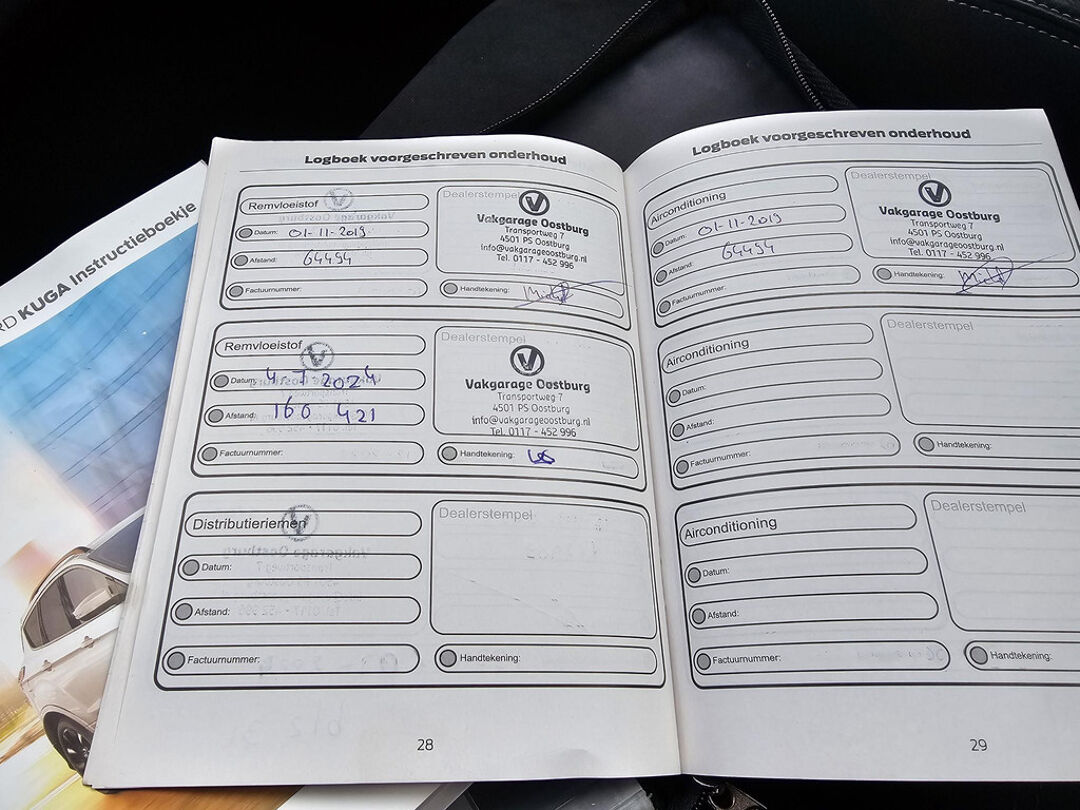 RD KUGA Instructieboekje
Logboek voorgeschreven onderhoud
Remvloeistof
Datum: 01-11-2019
Afstand: 64494
Factuurnummer:
Dealerstempel
Vakgarage Oostburg
Transportweg 7
4501 PS Oostburg
info@vakgarageoostburg.nl
Tel. 0117 - 452 996
Handtekening:
Remvloeistof
Datum: 4-7 2024
Afstand: 160 421
Factuurnummer:
Dealerstempel
Vakgarage Oostburg
Transportweg 7
4501 PS Oostburg
info@vakgarageoostburg.nl
Tel. 0117 - 452 996
Handtekening:
Distributieriemen
Datum:
Afstand:
Factuurnummer:
Dealerstempel
Handtekening:
28
Logboek voorgeschreven onderhoud
Airconditioning
Datum: 01-11-2019
Afstand: 64494
Factuurnummer:
Dealerstempel
Vakgarage Oostburg
Transportweg 7
4501 PS Oostburg
info@vakgarageoostburg.nl
Tel. 0117 - 452 996
Handtekening:
Airconditioning
Datum:
Afstand:
Factuurnummer:
Dealerstempel
Handtekening:
Airconditioning
Datum:
Afstand:
Factuurnummer:
Dealerstempel
Handtekening:
29